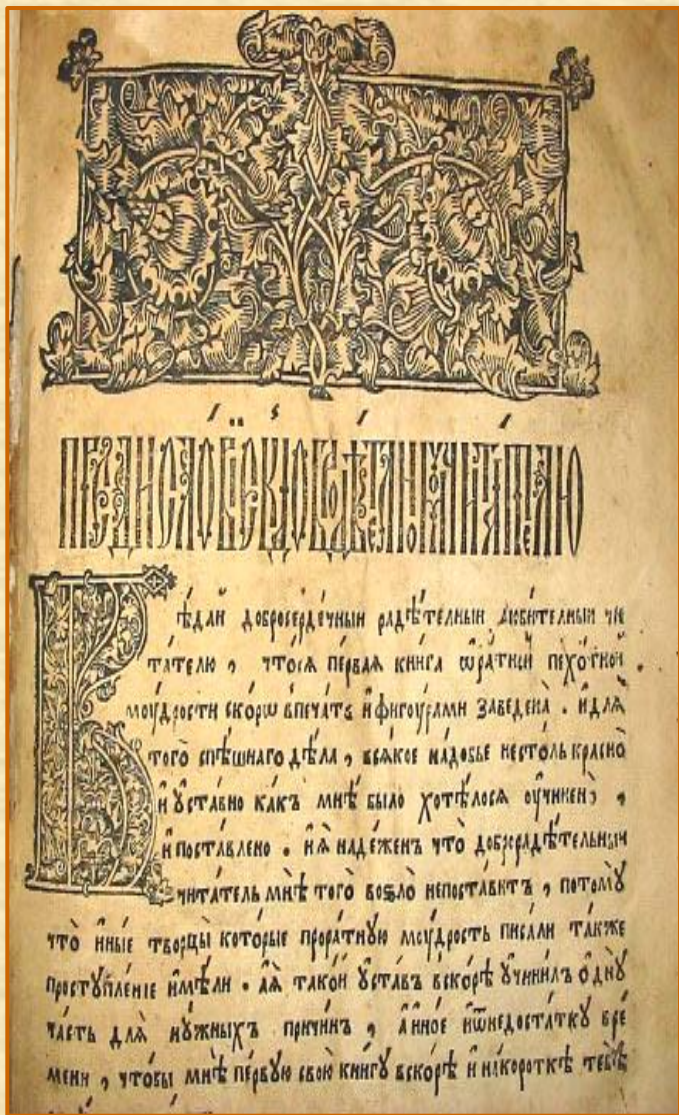 ПРЕДИСЛОВІЕ КДОБРОДѢТЕЛНОМУ ЧИТАТЕЛЮ
Вѣ́дай добросерде́чный радѣ́телный любителный чи
та́телю , что́сїѧ пе́рваѧ кни́га ѡ҆ра́тной пѣхо́тной
моу́дрости ско́рѡ впеча́ть и҆фигоу́рами заведена̀ . и҆длѧ̀
того̀ спѣ́шнагѡ дѣ́ла , всѧ́кое на́добье несто́ль красно̀
и҆ ᲂу҆ста́вно ка́къ мнѣ̀ бы́ло хотѣ́лосѧ ᲂу҆чинено̀ ,
и҆ поста́влено . и҆ꙗ҆̀ наде́женъ что̀ доброради́тельный
чита́тель мнѣ̀ того̀ воѕло̀ непоста́витъ , потомꙋ̀
что̀ и҆ны́е творцы̀ кото́рые прора́тнꙋю моу́дрость писа́ли та́кже
простꙋпле́нїе и҆мѣ́ли . а҆ꙗ҆̀ тако́й ᲂу҆ста́въ вско́рѣ ᲂу҆чини́лъ ѻ҆днꙋ̀
ча́сть длѧ̀ нꙋ́жныхъ причи́нъ , а҆и҆но́е и҆ѿнедоста́ткꙋ вре
мени , что́бы мнѣ̀ пе́рвꙋю свою̀ кни́гꙋ вско́рѣ и҆ нако́роткѣ тебѣ̀